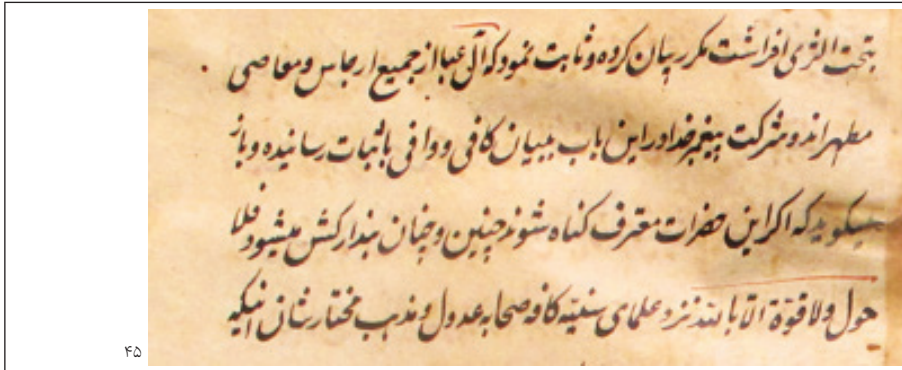 بتحت الثری افراشت مکرر بیان کرده و ثابت نمود که آل عبا از جمیع ارجاس و معاصی
مطهر اند و شرکت پیغمبر خدا در این باب ببیان کافی و وافی باثبات رسانیده و باز
میکوید که اکر این حضرات معترف کناه شوند چنین و چنان تدارکش میشود فلا
حول ولا قوة الا بالله نزد علمای سنیه کافه صحابه عدول و مذهب مختارشان اینکه
۴۵